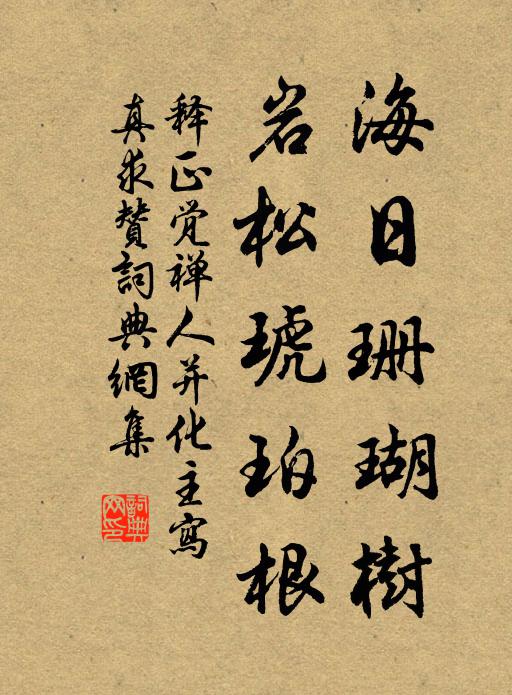 海日珊瑚樹
岩松琥珀根
释正觉禅人并化主寫
真求賛詞典網集
詞典网印